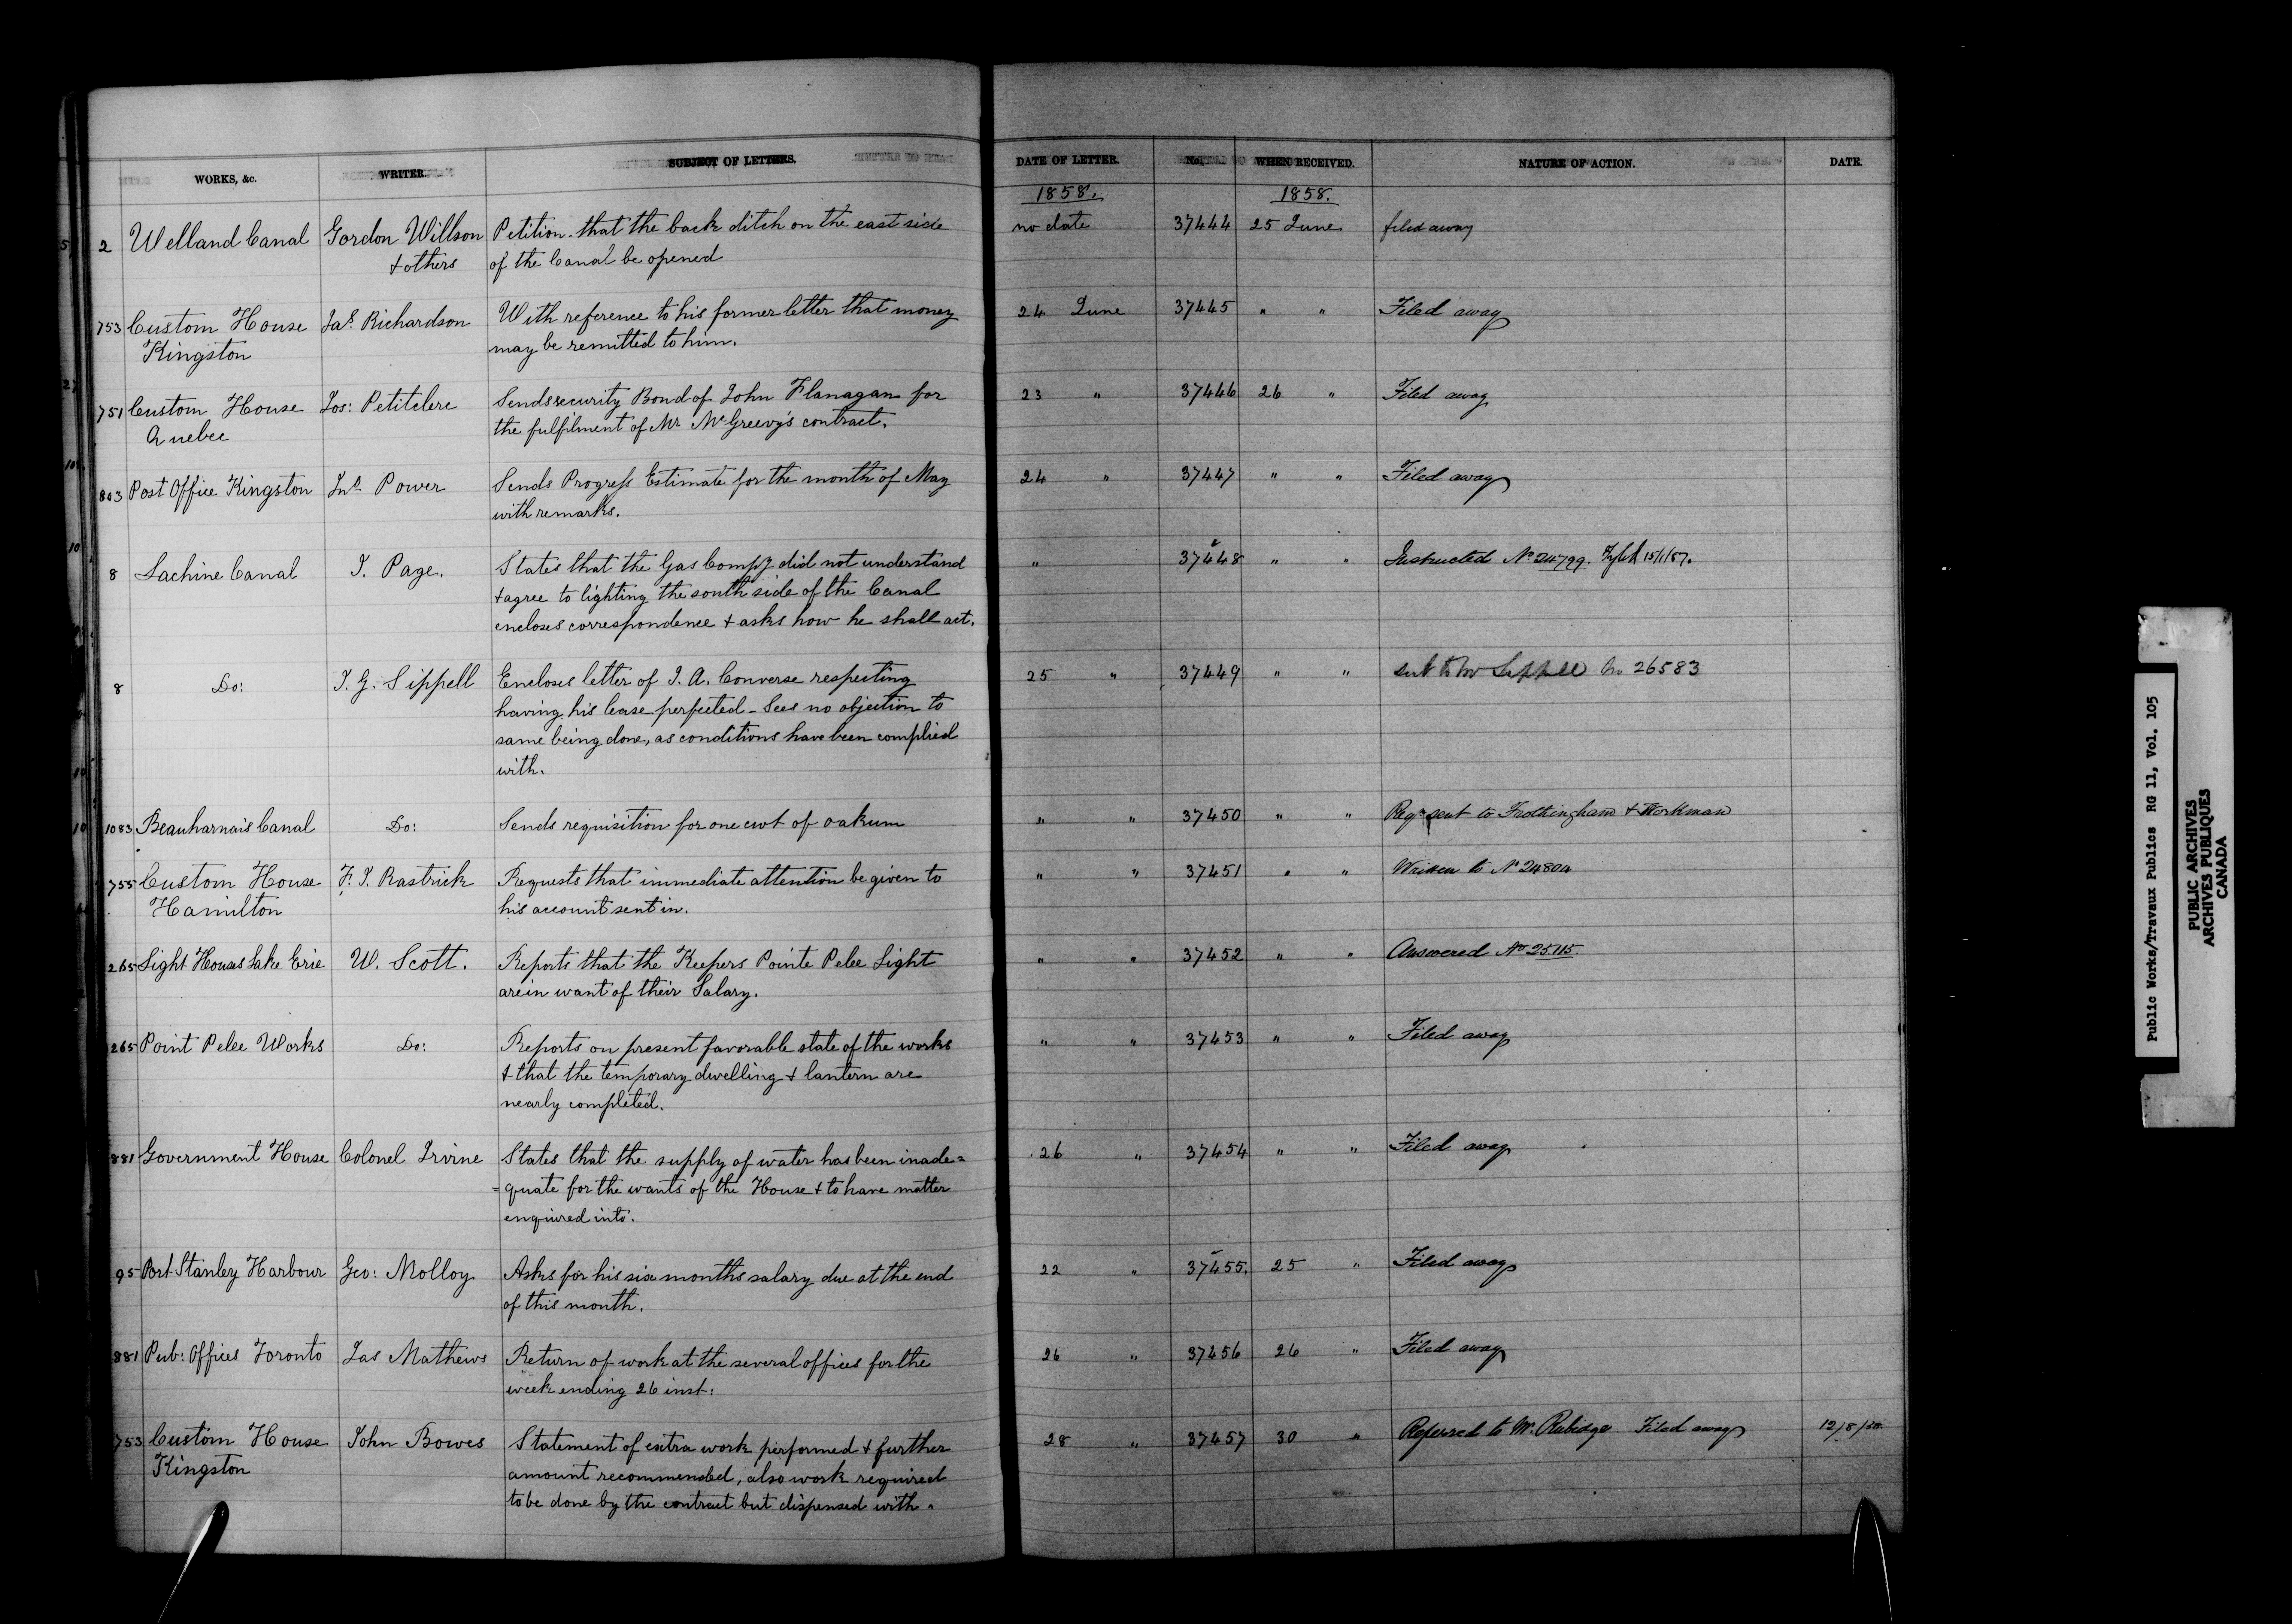 WORKS, &c. WRITER. SUBJECT OF LETTERS. DATE OF LETTER. No. WHEN RECEIVED. NATURE OF ACTION. DATE.
1858. 1858.
2 Welland Canal Gordon Willson Petition that the back ditch on the east side no date 37444 25 June filed away
& others of the Canal be opened
753 Custom House Jas. Richardson With reference to his former letter that money 24 June 37445 " " Filed away
Kingston may be remitted to him.
751 Custom House Jos: Petitclerc Sends security Bond of John Flanagan for 23 " 37446 26 " Filed away
Quebec the fulfilment of Mr McGreevy's contract.
803 Post Office Kingston Jno. Power Sends Progress Estimate for the month of May 24 " 37447 " " Filed away
with remarks.
8 Lachine Canal J. Page. States that the Gas Compy did not understand " 37448 " " Instructed No 24799. 15/1/57.
& agree to lighting the south side of the Canal
encloses correspondence & asks how he shall act.
8 Do: J. G. Sippell Encloses letter of J. A. Converse respecting 25 " 37449 " " sent to Mr Sippell No 26583
having his lease perfected - Sees no objection to
same being done, as conditions have been complied
with.
1083 Beauharnais Canal Do: Sends requisition for one cwt of oakum " " 37450 " " Reqn sent to Frothingham & Workman
755 Custom House F. J. Rastrick Requests that immediate attention be given to " " 37451 " " Written to No 24804
Hamilton his account sent in.
265 Light Houses Lake Erie W. Scott. Reports that the Keepers Pointe Pelee Light " " 37452 " " Answered No 25115.
are in want of their Salary.
265 Point Pelee Works Do: Reports on present favorable state of the works " " 37453 " " Filed away
& that the temporary dwelling & lantern are
nearly completed.
881 Government House Colonel Irvine States that the supply of water has been inade= 26 " 37454 " " Filed away
=quate for the wants of the House & to have matter
enquired into.
95 Port Stanley Harbour Geo: Molloy Asks for his six months salary due at the end 22 " 37455. 25 " Filed away
of this month.
881 Pub: Offices Toronto Jas Mathews Return of work at the several offices for the 26 " 37456 26 " Filed away
week ending 26 inst:
753 Custom House John Bowes Statement of extra work performed & further 28 " 37457 30 " Referred to Mr. Rubidge Filed away 12/8/58.
Kingston amount recommended, also work required
to be done by the contract but dispensed with.
Public Works/Travaux Publics RG 11, Vol. 105
PUBLIC ARCHIVES
ARCHIVES PUBLIQUES
CANADA